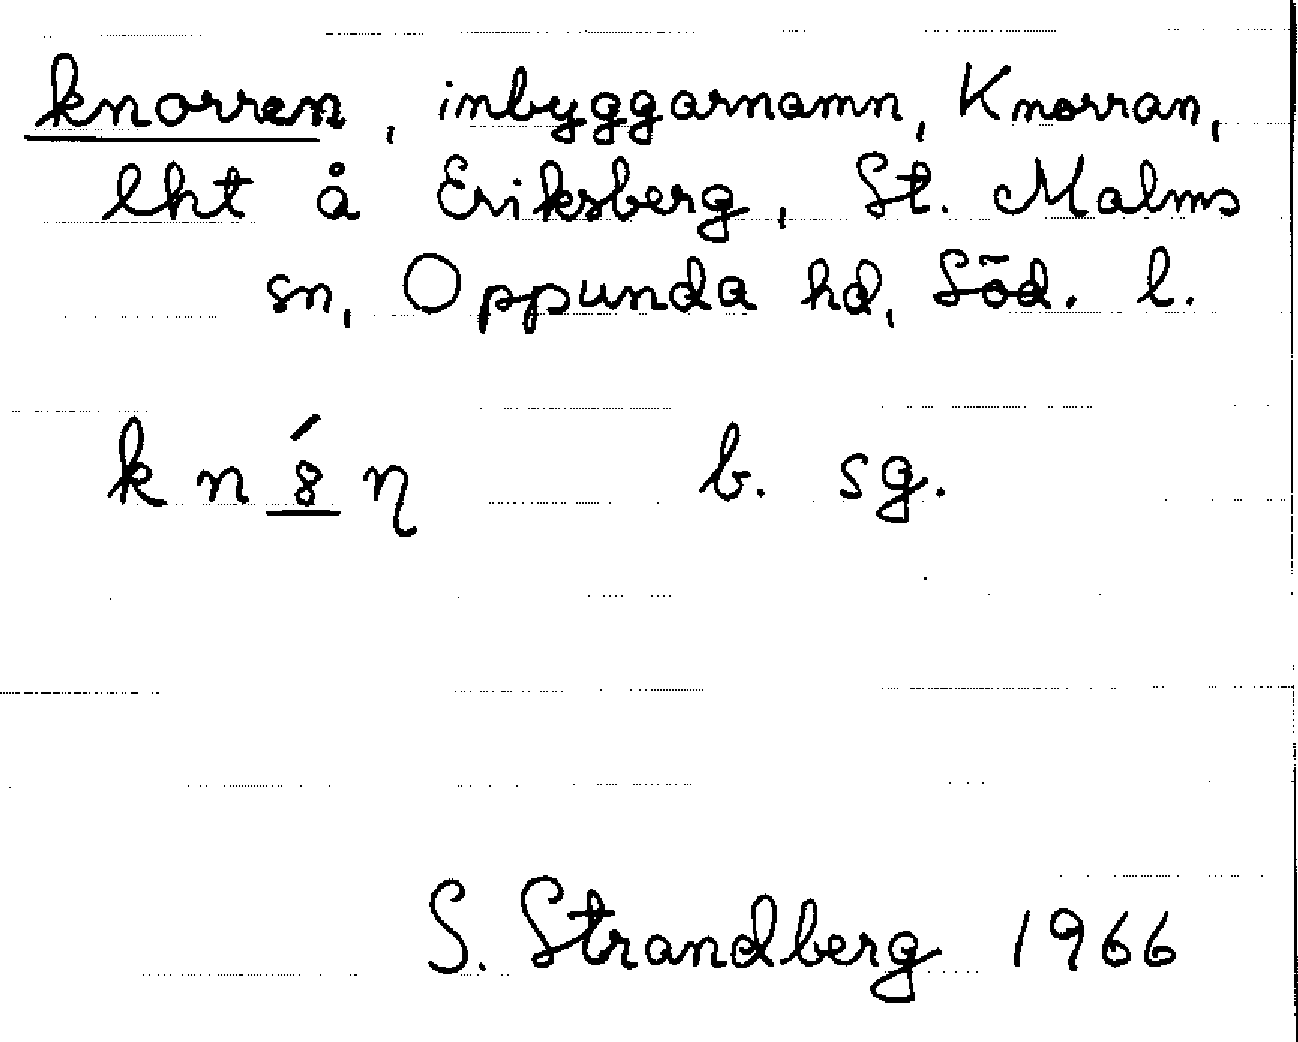 knorren, inbyggarnamn, Knorran,
lht å Eriksberg, St. Malms
sn, Oppunda hd, Söd. l.
b. sg.
S. Strandberg 1966